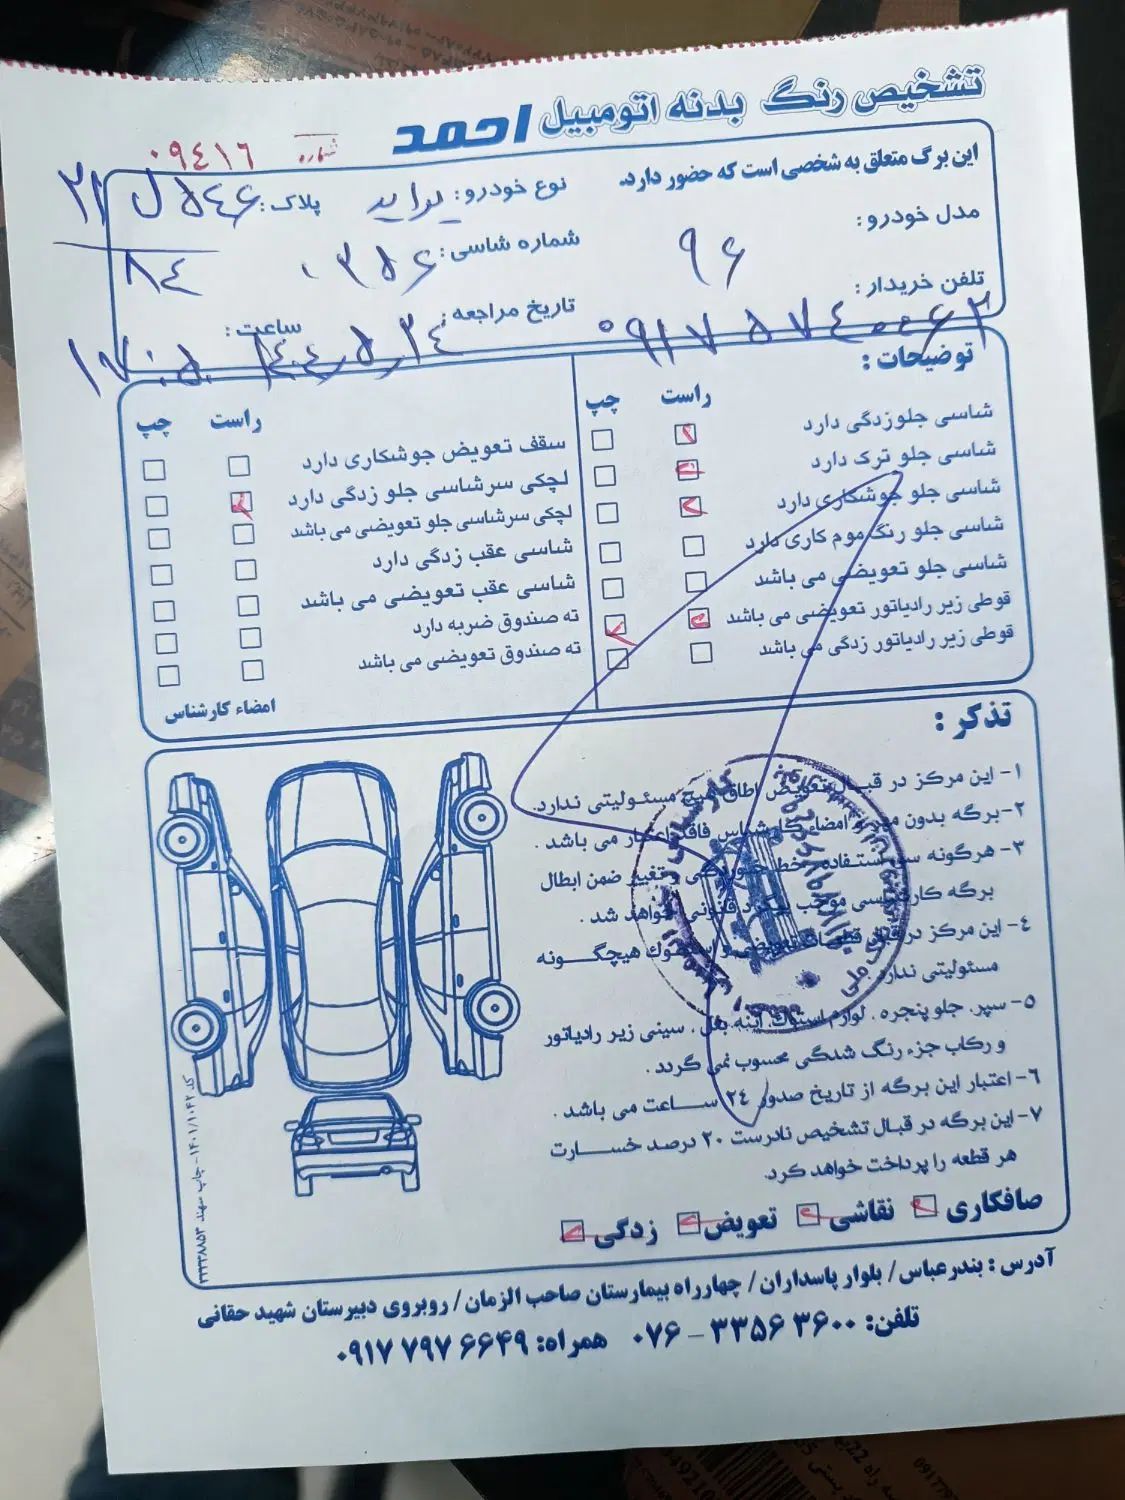 تشخیص رنگ بدنه اتومبیل احمد
شماره ۰۹٤۱٦
این برگ متعلق به شخصی است که حضور دارد.
نوع خودرو: پراید
پلاک: ۵٤۶ ل ۳۱
۸٤
مدل خودرو: ۹۶
شماره شاسی: ۰۳۵۶
تلفن خریدار:
تاریخ مراجعه: ۱٤۰٤/۵/۲٤
ساعت: ۱۷:۵۰
توضیحات:
راست چپ
شاسی جلوزدگی دارد
شاسی جلو ترک دارد
شاسی جلو جوشکاری دارد
شاسی جلو رنگ موم کاری دارد
شاسی جلو تعویضی می باشد
قوطی زیر رادیاتور تعویضی می باشد
قوطی زیر رادیاتور زدگی می باشد
راست چپ
سقف تعویض جوشکاری دارد
لچکی سرشاسی جلو زدگی دارد
لچکی سرشاسی جلو تعویضی می باشد
شاسی عقب زدگی دارد
شاسی عقب تعویضی می باشد
ته صندوق ضربه دارد
ته صندوق تعویضی می باشد
امضاء کارشناس
تذکر:
۱- این مرکز در قبال تعویض اطاق هیچ مسئولیتی ندارد.
۲- برگه بدون مهر و امضاء کارشناس فاقد اعتبار می باشد.
۳- هرگونه سوء استفاده، خط خوردگی و تغییر ضمن ابطال
برگه کارشناسی موجب پیگرد قانونی خواهد شد.
٤- این مرکز در قبال قطعات تعویضی و استوک هیچگونه
مسئولیتی ندارد.
۵- سپر، جلو پنجره، لوازم استوک، آینه بغل، سینی زیر رادیاتور
و رکاب جزء رنگ شدگی محسوب نمی گردد.
۶- اعتبار این برگه از تاریخ صدور ۲٤ ساعت می باشد.
۷- این برگه در قبال تشخیص نادرست ۲۰ درصد خسارت
هر قطعه را پرداخت خواهد کرد.
صافکاری نقاشی تعویض زدگی
آدرس: بندرعباس/ بلوار پاسداران/ چهارراه بیمارستان صاحب الزمان/ روبروی دبیرستان شهید حقانی
تلفن: ۳۳۵۶۳۶۰۰ - ۰۷۶ همراه: ۰۹۱۷ ۷۹۷ ۶۶٤۹